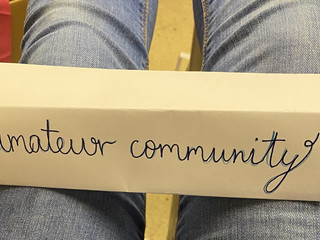 amateur community